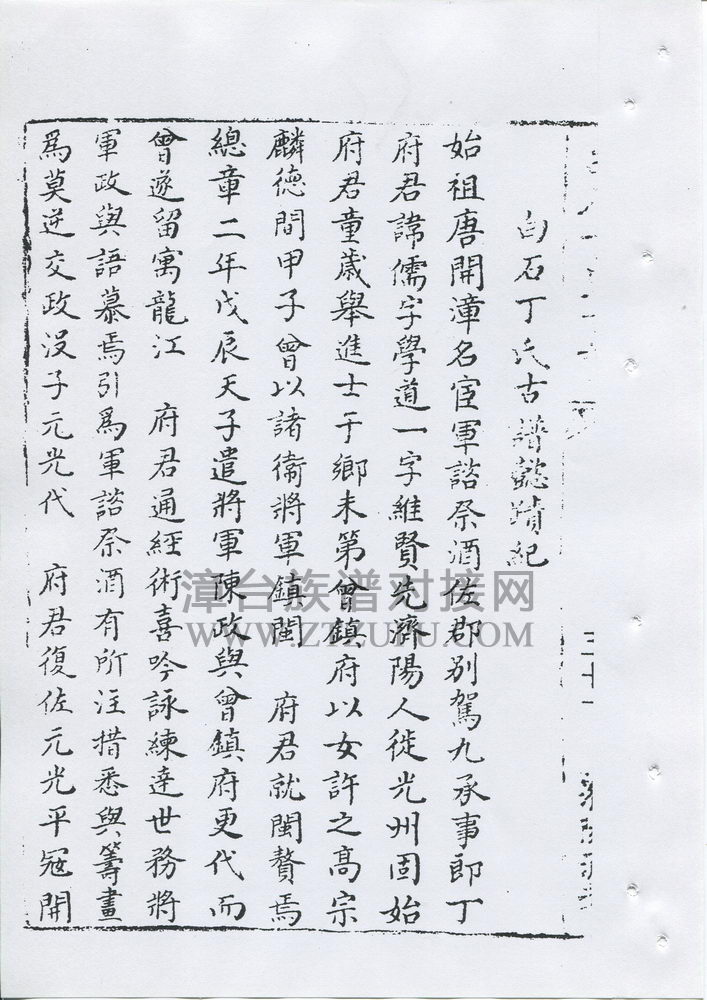 白石丁氏古譜懿蹟紀
始祖唐開漳名宦軍諮祭酒佐郡別駕九承事郎丁
府君諱儒字學道一字維賢先濟陽人徙光州固始
府君童歲舉進士于鄉未第曾鎮府以女許之高宗
麟德間甲子曾以諸衛將軍鎮閩 府君就閩贅焉
總章二年戊辰天子遣將軍陳政與曾鎮府更代而
曾遂留寓龍江 府君通經術喜吟詠練達世務將
軍政與語慕焉引爲軍諮祭酒有所注措悉與籌畫
爲莫逆交政沒子元光代 府君復佐元光平寇開
三十一
漳台族谱对接网
WWW.ZTZUPU.COM